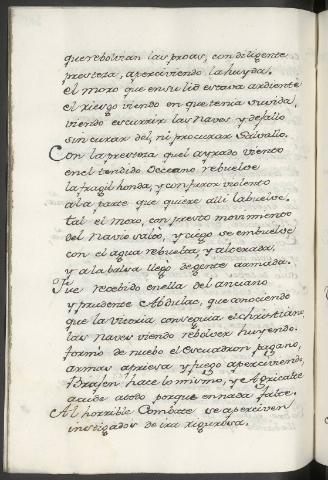 que rebolvian las proas, con diligente
presteza, aperciviendo la huyda.
el moro que en su lid estava ardiente
el riesgo viendo en que tenia su vida,
viendo escurrir las Naves y defallo
sin curar del, ni procurar salvallo.
Con la presteza quel ayrado viento
en el tendido Occeano rebuelve
la fragil honda, y con furor violento
a la parte que quiere alli la buelve.
tal el moro, con presto movimiento
del Navio salto, y ciego se embuelve
con el agua rebuelta, y alterada,
y a la balsa llegò de gente armada.
Fue recebido en ella del anciano
y prudente Abdulac, que conociendo
que la vitoria conseguia el christiano,
las Naves viendo rebolver huyendo.
formò de nuebo el escuadron pagano,
armas apriesa, y fuego aperciviendo,
Ydrasen hace lo mismo, y Agricalte
acude a todo porque en nada falte.
Al horrible Combate se aperciven
instigados de ira rigurosa.